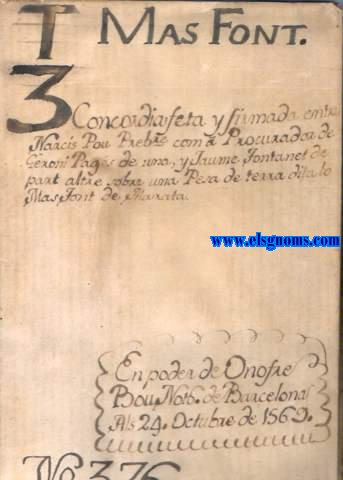 T MAS FONT.
3
Concordia feta y firmada entre
Narcis Pou Prebre com a Procurador de
Geroni Pages de una, y Jaume Fontanet de
part altre sobre una Pesa de terra dita lo
Mas Font de Marata.
www.elsgnoms.com
En poder de Onofre
Bou Notb. de Barcelona
Als 24. Octubre de 1569.
No 376